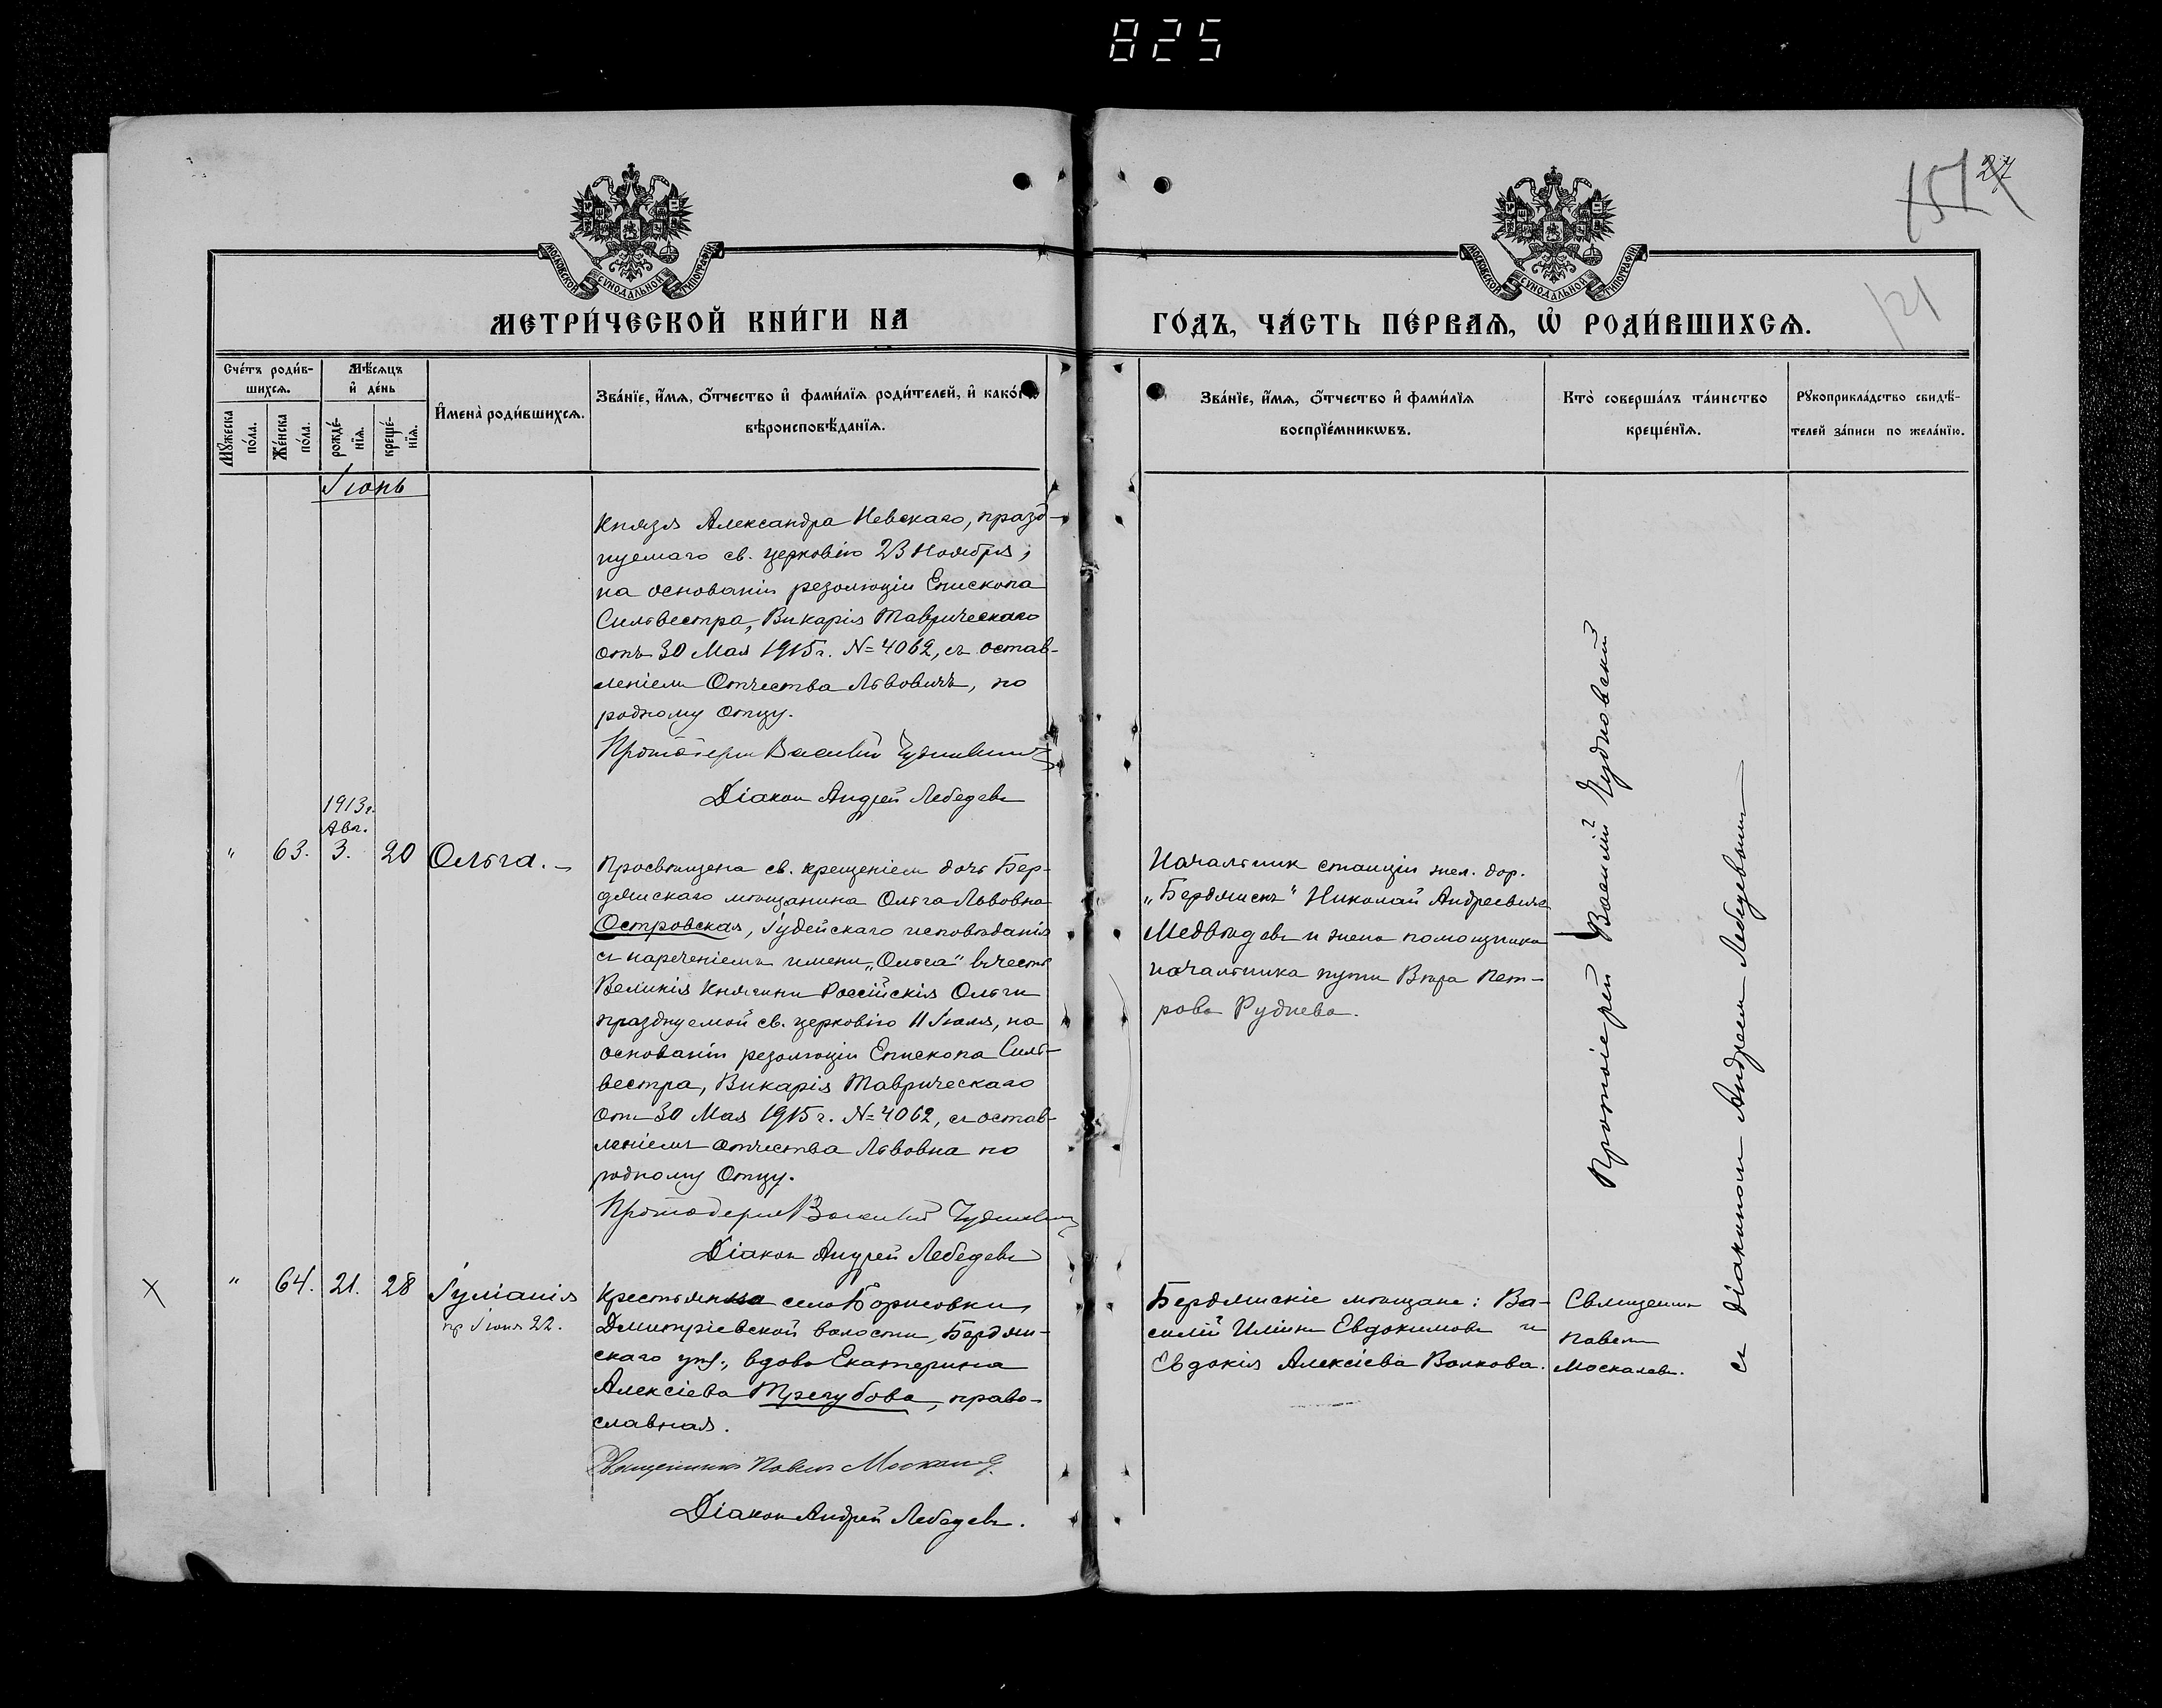 825
27
151
121
МОСКОВСКОЙ СѴНОДАЛЬНОЙ ТИПОГРАФІИ
МОСКОВСКОЙ СѴНОДАЛЬНОЙ ТИПОГРАФІИ
МЕТРИ́ЧЕСКОЙ КНИ́ГИ НА
ГО́ДЪ, ЧА́СТЬ ПЕ́РВАѦ, Ѽ РОДИ́ВШИХСѦ.
Сче́тъ роди́в-
шихсѧ.
Мꙋжеска по́ла.
Же́нска по́ла.
Мѣ́сѧцъ
и҆ де́нь
рожде́-
нїѧ.
креще́-
нїѧ.
И҆мена̀ роди́вшихсѧ.
Зва́нїе, и҆́мѧ, ѻ҆́тчество и҆ фами́лїѧ роди́телей, и҆ како́гѡ
вѣроисповѣ́данїѧ.
Зва́нїе, и҆́мѧ, ѻ҆́тчество и҆ фами́лїѧ
воспрїе́мникѡвъ.
Кто̀ соверша́лъ та́инство
креще́нїѧ.
Рꙋкоприкла́дство свидѣ́-
телей за́писи по жела́нїю.
Іюнь
Князя Александра Невскаго, празд-
нуемаго св. церковію 23 Ноября,
на основаніи резолюціи Епископа
Сильвестра, Викарія Таврическаго
отъ 30 Мая 1915 г. № 4062, съ остав-
леніемъ Отчества Львовичъ, по
родному Отцу.
Протоіерей Василій Чудновскій
Діаконъ Андрей Лебедевъ
1913 г.
Авг.
" 63. 3. 20 Ольга. –
Просвѣщена св. крещеніемъ дочь Бер-
дянскаго мѣщанина Ольга Львовна
Островская, Іудейскаго исповѣданія
съ нареченіемъ имени „Ольга" въ честь
Великія Княгини Россійскія Ольги
празднуемой св. церковію 11 Іюля, на
основаніи резолюціи Епископа Силь-
вестра, Викарія Таврическаго
отъ 30 Мая 1915 г. № 4062, съ остав-
леніемъ отчества Львовна по
родному Отцу.
Протоіерей Василій Чудновскій
Діаконъ Андрей Лебедевъ
Начальникъ станціи жел. дор.
„Бердянскъ" Николай Андреевичъ
Медвѣдевъ и жена помощника
начальника пути Вѣра Пет-
рова Руднева.
Протоіерей Василій Чудновскій
съ діакономъ Андреемъ Лебедевымъ
х " 64. 21. 28 Іуліанія
пр Іюня 22.
Крестьянка села Борисовки,
Дмитріевской волости, Бердян-
скаго уѣз., вдова Екатерина
Алексіева Трегубова, право-
славная.
Священникъ Павелъ Москалевъ
Діаконъ Андрей Лебедевъ.
Бердянскіе мѣщане: Ва-
силій Иліинъ Евдокимовъ и
Евдокія Алексіева Волкова.
Священникъ
Павелъ
Москалевъ.